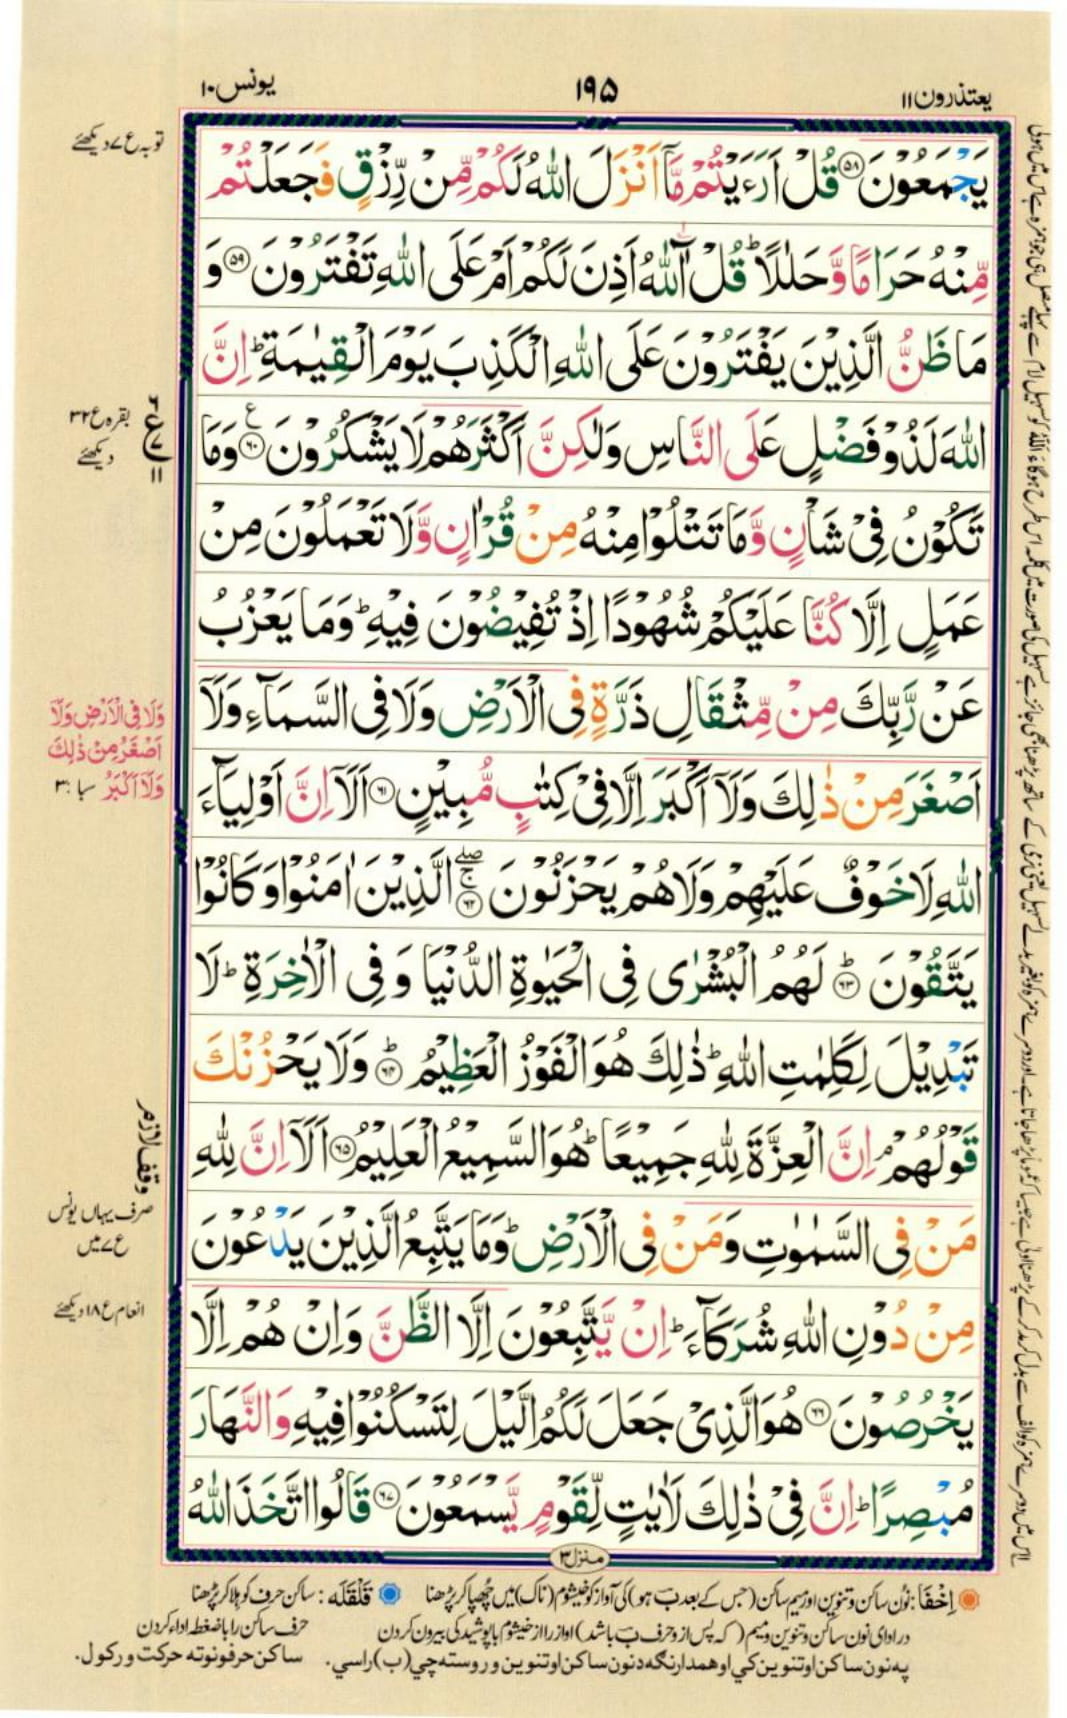 یعتذرون ۱۱
۱۹۵
یونس ۱۰
یَجْمَعُوْنَ ﴿۵۸﴾ قُلْ اَرَءَیْتُمْ مَّاۤ اَنْزَلَ اللّٰهُ لَكُمْ مِّنْ رِّزْقٍ فَجَعَلْتُمْ
مِّنْهُ حَرَامًا وَّحَلٰلًا ؕ قُلْ آٰللّٰهُ اَذِنَ لَكُمْ اَمْ عَلَی اللّٰهِ تَفْتَرُوْنَ ﴿۵۹﴾ وَ
مَا ظَنُّ الَّذِیْنَ یَفْتَرُوْنَ عَلَی اللّٰهِ الْكَذِبَ یَوْمَ الْقِیٰمَةِ ؕ اِنَّ
اللّٰهَ لَذُوْ فَضْلٍ عَلَی النَّاسِ وَلٰكِنَّ اَكْثَرَهُمْ لَا یَشْكُرُوْنَ ﴿۶۰﴾ع وَمَا
تَكُوْنُ فِیْ شَاْنٍ وَّمَا تَتْلُوْا مِنْهُ مِنْ قُرْاٰنٍ وَّلَا تَعْمَلُوْنَ مِنْ
عَمَلٍ اِلَّا كُنَّا عَلَیْكُمْ شُهُوْدًا اِذْ تُفِیْضُوْنَ فِیْهِ ؕ وَمَا یَعْزُبُ
عَنْ رَّبِّكَ مِنْ مِّثْقَالِ ذَرَّةٍ فِی الْاَرْضِ وَلَا فِی السَّمَآءِ وَلَاۤ
اَصْغَرَ مِنْ ذٰلِكَ وَلَاۤ اَكْبَرَ اِلَّا فِیْ كِتٰبٍ مُّبِیْنٍ ﴿۶۱﴾ اَلَاۤ اِنَّ اَوْلِیَآءَ
اللّٰهِ لَا خَوْفٌ عَلَیْهِمْ وَلَا هُمْ یَحْزَنُوْنَ ﴿۶۲﴾ۚۖ الَّذِیْنَ اٰمَنُوْا وَكَانُوْا
یَتَّقُوْنَ ﴿۶۳﴾ؕ لَهُمُ الْبُشْرٰی فِی الْحَیٰوةِ الدُّنْیَا وَ فِی الْاٰخِرَةِ ؕ لَا
تَبْدِیْلَ لِكَلِمٰتِ اللّٰهِ ؕ ذٰلِكَ هُوَ الْفَوْزُ الْعَظِیْمُ ﴿۶۴﴾ؕ وَلَا یَحْزُنْكَ
قَوْلُهُمْ ۘ اِنَّ الْعِزَّةَ لِلّٰهِ جَمِیْعًا ؕ هُوَ السَّمِیْعُ الْعَلِیْمُ ﴿۶۵﴾ اَلَاۤ اِنَّ لِلّٰهِ
مَنْ فِی السَّمٰوٰتِ وَمَنْ فِی الْاَرْضِ ؕ وَمَا یَتَّبِعُ الَّذِیْنَ یَدْعُوْنَ
مِنْ دُوْنِ اللّٰهِ شُرَكَآءَ ؕ اِنْ یَّتَّبِعُوْنَ اِلَّا الظَّنَّ وَاِنْ هُمْ اِلَّا
یَخْرُصُوْنَ ﴿۶۶﴾ هُوَ الَّذِیْ جَعَلَ لَكُمُ الَّیْلَ لِتَسْكُنُوْا فِیْهِ وَالنَّهَارَ
مُبْصِرًا ؕ اِنَّ فِیْ ذٰلِكَ لَاٰیٰتٍ لِّقَوْمٍ یَّسْمَعُوْنَ ﴿۶۷﴾ قَالُوا اتَّخَذَ اللّٰهُ
منزل ۳
توبہ ع ۷ دیکھئے
بقرہ ع ۳۲
دیکھئے
ع
۱۱
وَلَا فِی الْاَرْضِ وَلَاۤ
اَصْغَرُ مِنْ ذٰلِكَ
وَلَاۤ اَكْبَرُ سبا : ۳
وقف لازم
صرف یہاں یونس
ع ۷ میں
انعام ع ۱۸ دیکھئے
اِخْفَا : نون ساکن و تنوین اور میم ساکن (جس کے بعد ب ہو) کی آواز کو خیشوم (ناک) میں چھپا کر پڑھنا
قَلْقَلَہ : ساکن حرف کو ہلا کر پڑھنا
در ادای نون ساکن و تنوین و میم (که پس از و حرف ب باشد) آواز را از خیشوم با پوشیدگی بیرون کردن
حرف ساکن را با ضغطه ادا کردن
په نون ساکن او تنوین کي او همدارنګه د نون ساکن او تنوین وروسته چي (ب) راسي.
ساکن حرفونو ته حرکت ورکول.